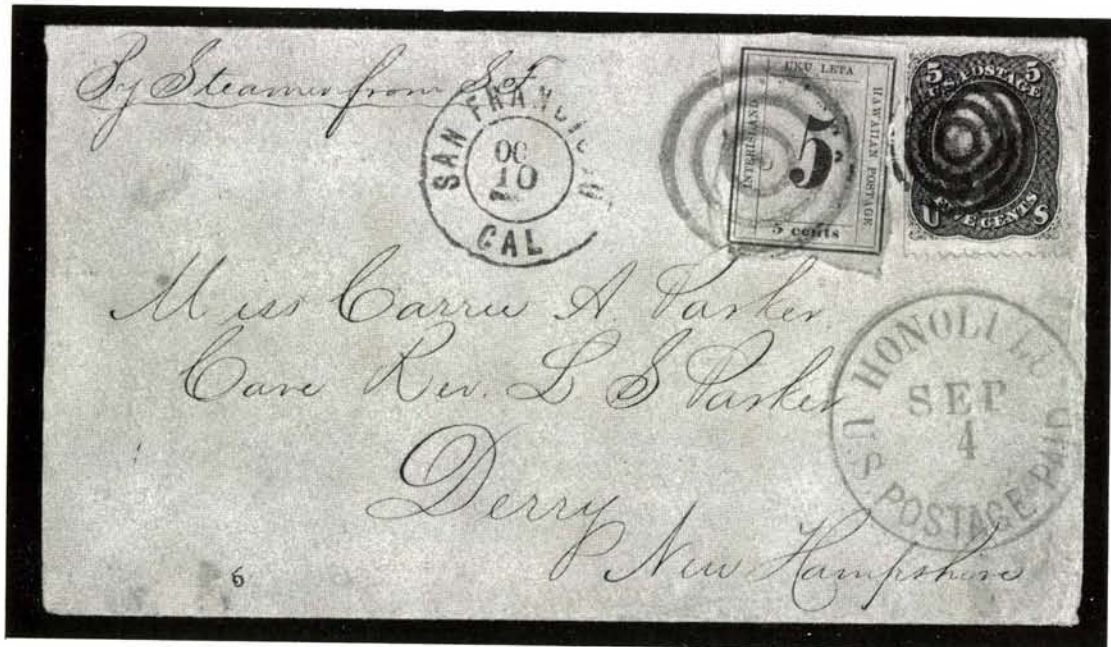 By Steamer from S.F.
SAN FRANCISCO
OC
10
CAL
UKU LETA
INTERISLAND
HAWAIIAN POSTAGE
5
5 cents
5 5
U.S. POSTAGE
FIVE CENTS
U S
Miss Carrie A Parker
Care Rev. L S Parker
Derry
New Hampshire
HONOLULU
SEP
4
U.S. POSTAGE PAID
6